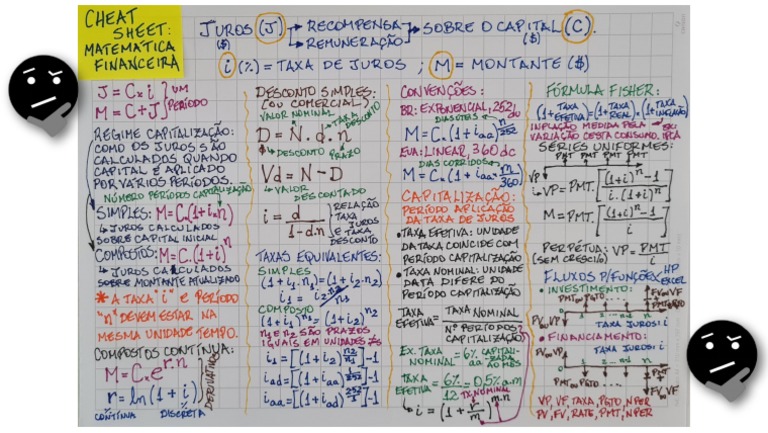 CHEAT
SHEET:
MATEMÁTICA
FINANCEIRA
JUROS (J) → RECOMPENSA → SOBRE O CAPITAL (C).
($) → REMUNERAÇÃO ($)
i (%) = TAXA DE JUROS ; M = MONTANTE ($)
J = C x i } UM
M = C + J } PERÍODO
REGIME CAPITALIZAÇÃO:
COMO OS JUROS SÃO
CALCULADOS QUANDO
CAPITAL É APLICADO
POR VÁRIOS PERÍODOS.
NÚMERO PERÍODOS CAPITALIZAÇÃO
SIMPLES: M = C.(1+i.n)
↳ JUROS CALCULADOS
SOBRE CAPITAL INICIAL
COMPOSTOS: M = C.(1+i)^n
↳ JUROS CALCULADOS
SOBRE MONTANTE ATUALIZADO
* A TAXA "i" E PERÍODO
"n" DEVEM ESTAR NA
MESMA UNIDADE TEMPO.
COMPOSTOS CONTÍNUA:
M = C x e^(r.n)
r = ln(1+i)
CONTÍNUA DISCRETA
DERIVATIVO
DESCONTO SIMPLES:
(OU COMERCIAL)
VALOR NOMINAL TAXA DESCONTO
D = N.d.n
$ ↳ DESCONTO PRAZO
Vd = N - D
↳ VALOR
DESCONTADO
i = d / (1-d.n)
RELAÇÃO
TAXA
JUROS
E TAXA
DESCONTO
TAXAS EQUIVALENTES:
SIMPLES
(1+i1.n1) = (1+i2.n2)
i1 = i2 n2/n1
COMPOSTO
(1+i1)^n1 = (1+i2)^n2
n1 E n2 SÃO PRAZOS
IGUAIS EM UNIDADES ≠S
i1 = [(1+i2)^(n2/n1)] - 1
iad = [(1+iaa)^(1/252)] - 1
iaa = [(1+iad)^(252/1)] - 1
CONVENÇÕES:
BR: EXPONENCIAL, 252 du
DIAS ÚTEIS
M = C.(1+iaa)^(n/252)
EUA: LINEAR, 360 dc
DIAS CORRIDOS
M = C.(1+iaa.n/360)
CAPITALIZAÇÃO:
PERÍODO APLICAÇÃO
DA TAXA DE JUROS
• TAXA EFETIVA: UNIDADE
DA TAXA COINCIDE COM
PERÍODO CAPITALIZAÇÃO
• TAXA NOMINAL: UNIDADE
DATA DIFERE DO
PERÍODO CAPITALIZAÇÃO
TAXA EFETIVA = TAXA NOMINAL / Nº PERÍODOS CAPITALIZAÇÃO
EX. TAXA NOMINAL = 6% aa CAPITALIZADA AO MÊS
TAXA EFETIVA = 6%/12 = 0,5% a.m
TX. NOMINAL
↳ i = (1 + r/m)^(m.n)
FÓRMULA FISHER:
(1+TAXA EFETIVA) = (1+TAXA REAL).(1+TAXA INFLAÇÃO)
INFLAÇÃO MEDIDA PELA
VARIAÇÃO CESTA CONSUMO, IPCA
SÉRIES UNIFORMES:
PMT PMT PMT PMT
VP
↳ VP = PMT.[((1+i)^n - 1) / (i.(1+i)^n)]
M = PMT.[((1+i)^n - 1) / i]
PERPÉTUA: VP = PMT / i
(SEM CRESC/O)
FLUXOS P/ FUNÇÕES HP
EXCEL
• INVESTIMENTO:
PMT ou PGTO
FV ou VF
PV ou VP
TAXA JUROS: i
• FINANCIAMENTO:
PV ou VP
TAXA JUROS: i
PMT ou PGTO
FV ou VF
VP, VF, TAXA, PGTO, NPER
PV, FV, RATE, PMT, NPER